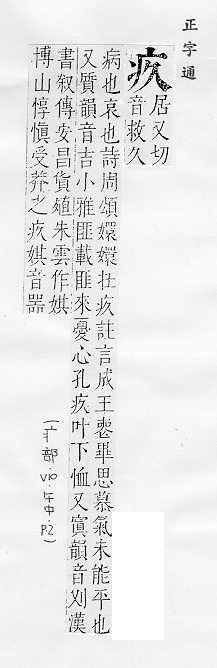 正字通
疚 居又切
音救久
病也哀也詩周頌嬛嬛在疚註言成王喪畢思慕氣未能平也
又質韻音吉小雅匪載匪來憂心孔疚叶下恤又寘韻音刈漢
書叙傳安昌貨殖朱雲作娸
博山惇愼受莽之疚娸音器
(疒部.V10.午中.P2)